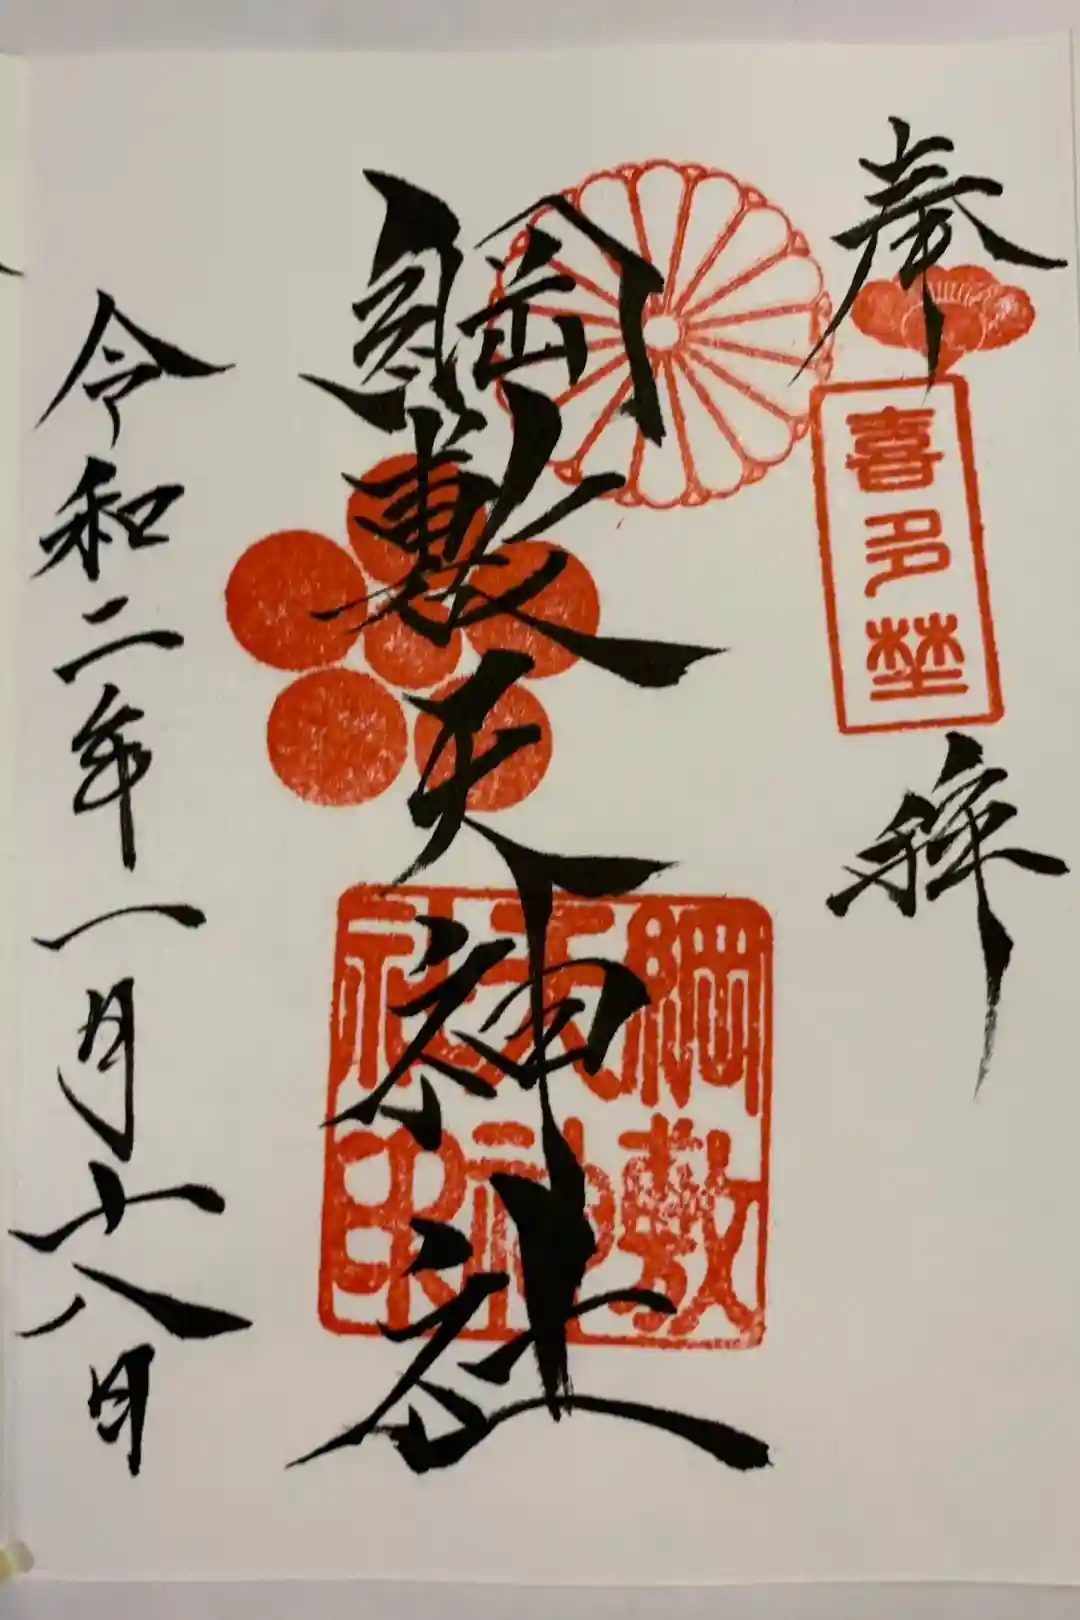 奉拝
喜多埜
綱敷天神社
綱敷
天神
社印
令和二年一月十八日